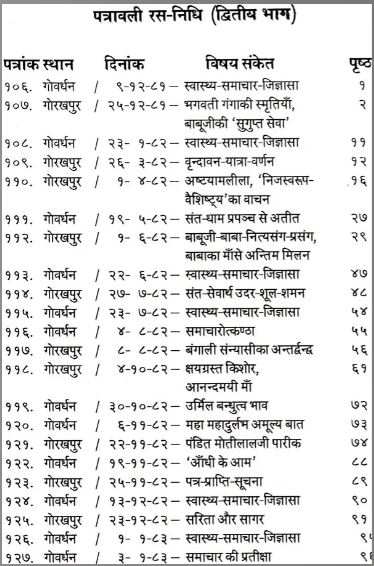 पत्रावली रस-निधि (द्वितीय भाग)
पत्रांक स्थान दिनांक विषय संकेत पृष्ठ
१०६. गोवर्धन / ९-१२-८१ – स्वास्थ्य-समाचार-जिज्ञासा १
१०७. गोरखपुर / २५-१२-८१ – भगवती गंगाकी स्मृतियाँ, २
बाबूजीकी 'सुगुप्त सेवा'
१०८. गोवर्धन / २३- १-८२ – स्वास्थ्य-समाचार-जिज्ञासा ११
१०९. गोरखपुर / २६- ३-८२ – वृन्दावन-यात्रा-वर्णन १२
११०. गोरखपुर / १- ४-८२ – अष्टयामलीला, 'निजस्वरूप- १६
वैशिष्ट्य' का वाचन
१११. गोवर्धन / १९- ५-८२ – संत-धाम प्रपञ्च से अतीत २७
११२. गोरखपुर / १- ६-८२ – बाबूजी-बाबा-नित्यसंग-प्रसंग, २९
बाबाका माँसे अन्तिम मिलन
११३. गोवर्धन / २२- ६-८२ – स्वास्थ्य-समाचार-जिज्ञासा ४७
११४. गोरखपुर / २७- ७-८२ – संत-सेवार्थ उदर-शूल-शमन ४८
११५. गोवर्धन / २३- ७-८२ – स्वास्थ्य-समाचार-जिज्ञासा ५४
११६. गोवर्धन / ४- ८-८२ – समाचारोत्कण्ठा ५५
११७. गोरखपुर / ८- ८-८२ – बंगाली संन्यासीका अन्तर्द्वन्द्व ५६
११८. गोरखपुर / ४-१०-८२ – क्षयग्रस्त किशोर, ६१
आनन्दमयी माँ
११९. गोवर्धन / ३०-१०-८२ – उर्मिल बन्धुत्व भाव ७२
१२०. गोवर्धन / ६-११-८२ – महा महादुर्लभ अमूल्य बात ७३
१२१. गोरखपुर / २२-११-८२ – पंडित मोतीलालजी पारीक ७४
१२२. गोवर्धन / १९-११-८२ – 'आँधी के आम' ८८
१२३. गोरखपुर / २५-११-८२ – पत्र-प्राप्ति-सूचना ८९
१२४. गोवर्धन / १३-१२-८२ – स्वास्थ्य-समाचार-जिज्ञासा ९०
१२५. गोरखपुर / २३-१२-८२ – सरिता और सागर ९१
१२६. गोवर्धन / १- १-८३ – स्वास्थ्य-समाचार-जिज्ञासा
१२७. गोवर्धन / ३- १-८३ – समाचार की प्रतीक्षा